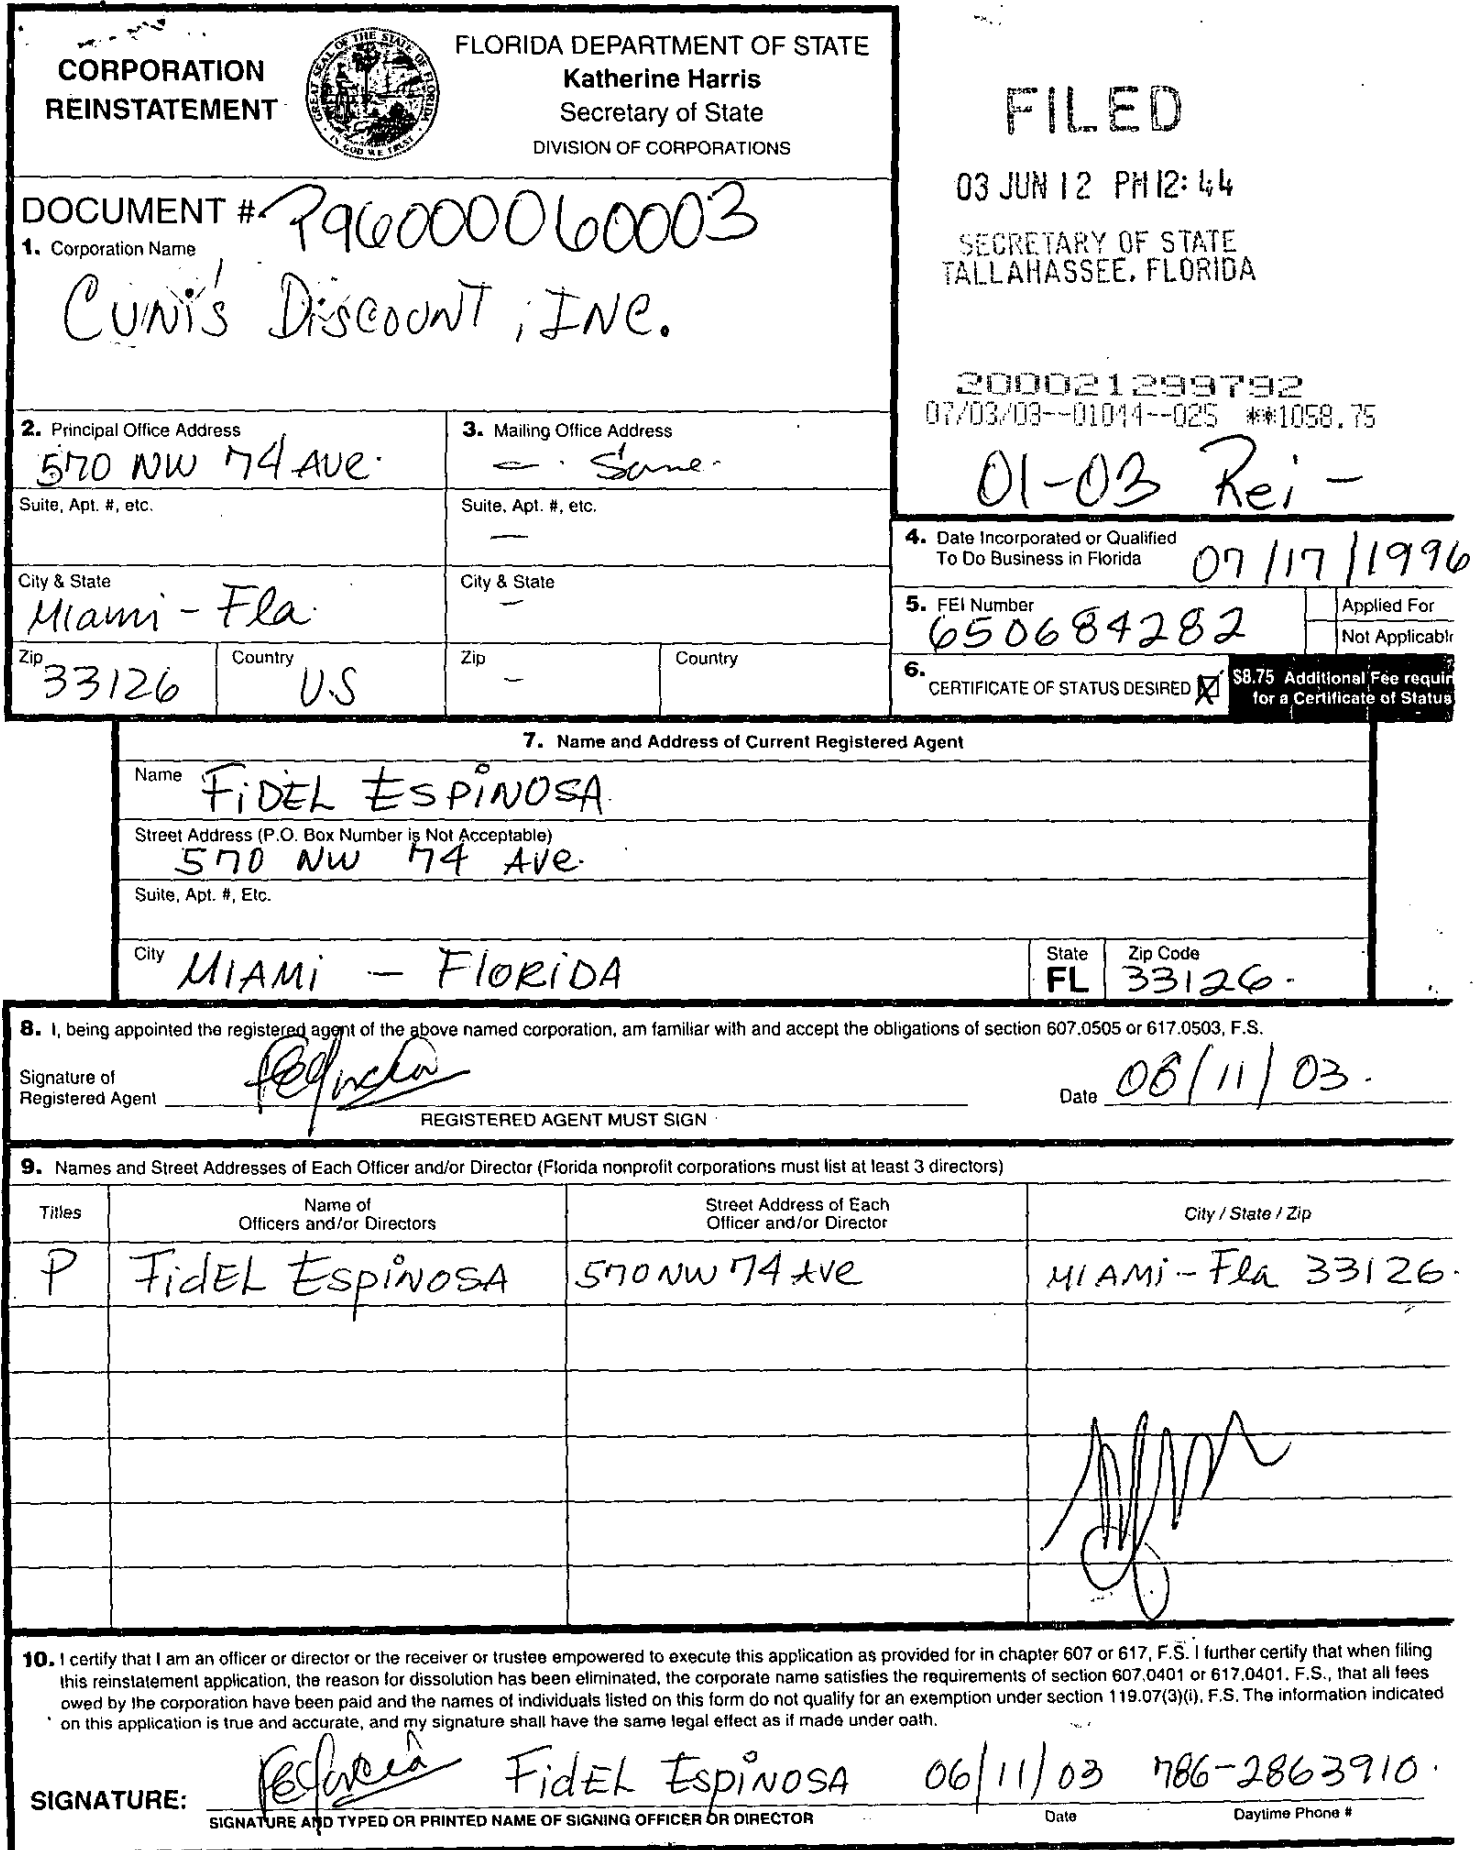 CORPORATION
REINSTATEMENT
GREAT SEAL OF THE STATE OF FLORIDA
IN GOD WE TRUST
FLORIDA DEPARTMENT OF STATE
Katherine Harris
Secretary of State
DIVISION OF CORPORATIONS
FILED
03 JUN 12 PM 12:44
SECRETARY OF STATE
TALLAHASSEE, FLORIDA
DOCUMENT # P96000060003
1. Corporation Name
CUNI'S DISCOUNT, INC.
200021299792
07/03/03--01044--025 **1058.75
01-03 Rei -
2. Principal Office Address
570 NW 74 AVE.
3. Mailing Office Address
— Same -
Suite, Apt. #, etc.
Suite, Apt. #, etc.
—
4. Date Incorporated or Qualified
To Do Business in Florida 07/17/1996
City & State
Miami - Fla.
City & State
—
5. FEI Number
650684282
Applied For
Not Applicabl
Zip
33126
Country
U.S
Zip
—
Country
6. CERTIFICATE OF STATUS DESIRED
$8.75 Additional Fee requir
for a Certificate of Status
7. Name and Address of Current Registered Agent
Name FIDEL ESPINOSA
Street Address (P.O. Box Number is Not Acceptable)
570 NW 74 Ave.
Suite, Apt. #, Etc.
City MIAMI — FLORIDA
State
FL
Zip Code
33126.
8. I, being appointed the registered agent of the above named corporation, am familiar with and accept the obligations of section 607.0505 or 617.0503, F.S.
Signature of
Registered Agent
REGISTERED AGENT MUST SIGN
Date 06/11/03.
9. Names and Street Addresses of Each Officer and/or Director (Florida nonprofit corporations must list at least 3 directors)
Titles
Name of
Officers and/or Directors
Street Address of Each
Officer and/or Director
City / State / Zip
P FidEL EspiNOSA 570 NW 74 AVE MIAMi - Fla 33126.
10. I certify that I am an officer or director or the receiver or trustee empowered to execute this application as provided for in chapter 607 or 617, F.S. I further certify that when filing
this reinstatement application, the reason for dissolution has been eliminated, the corporate name satisfies the requirements of section 607.0401 or 617.0401, F.S., that all fees
owed by the corporation have been paid and the names of individuals listed on this form do not qualify for an exemption under section 119.07(3)(i), F.S. The information indicated
on this application is true and accurate, and my signature shall have the same legal effect as if made under oath.
SIGNATURE: FidEL EspiNOSA 06/11/03 786-2863910.
SIGNATURE AND TYPED OR PRINTED NAME OF SIGNING OFFICER OR DIRECTOR
Date
Daytime Phone #